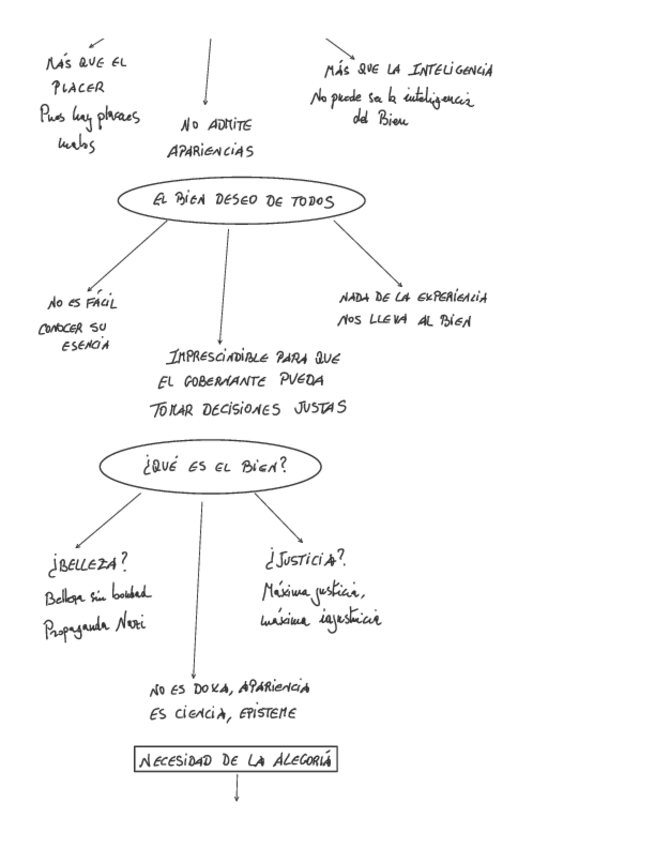 MÁS QUE EL
PLACER
Pues hay placeres
malos
NO ADMITE
APARIENCIAS
MÁS QUE LA INTELIGENCIA
No puede ser la inteligencia
del Bien
EL BIEN DESEO DE TODOS
NO ES FÁCIL
CONOCER SU
ESENCIA
IMPRESCINDIBLE PARA QUE
EL GOBERNANTE PUEDA
TOMAR DECISIONES JUSTAS
NADA DE LA EXPERIENCIA
NOS LLEVA AL BIEN
¿QUÉ ES EL BIEN?
¿BELLEZA?
Belleza sin bondad
Propaganda Nazi
¿JUSTICIA?
Máxima justicia,
máxima injusticia
NO ES DOXA, APARIENCIA
ES CIENCIA, EPISTEME
NECESIDAD DE LA ALEGORÍA